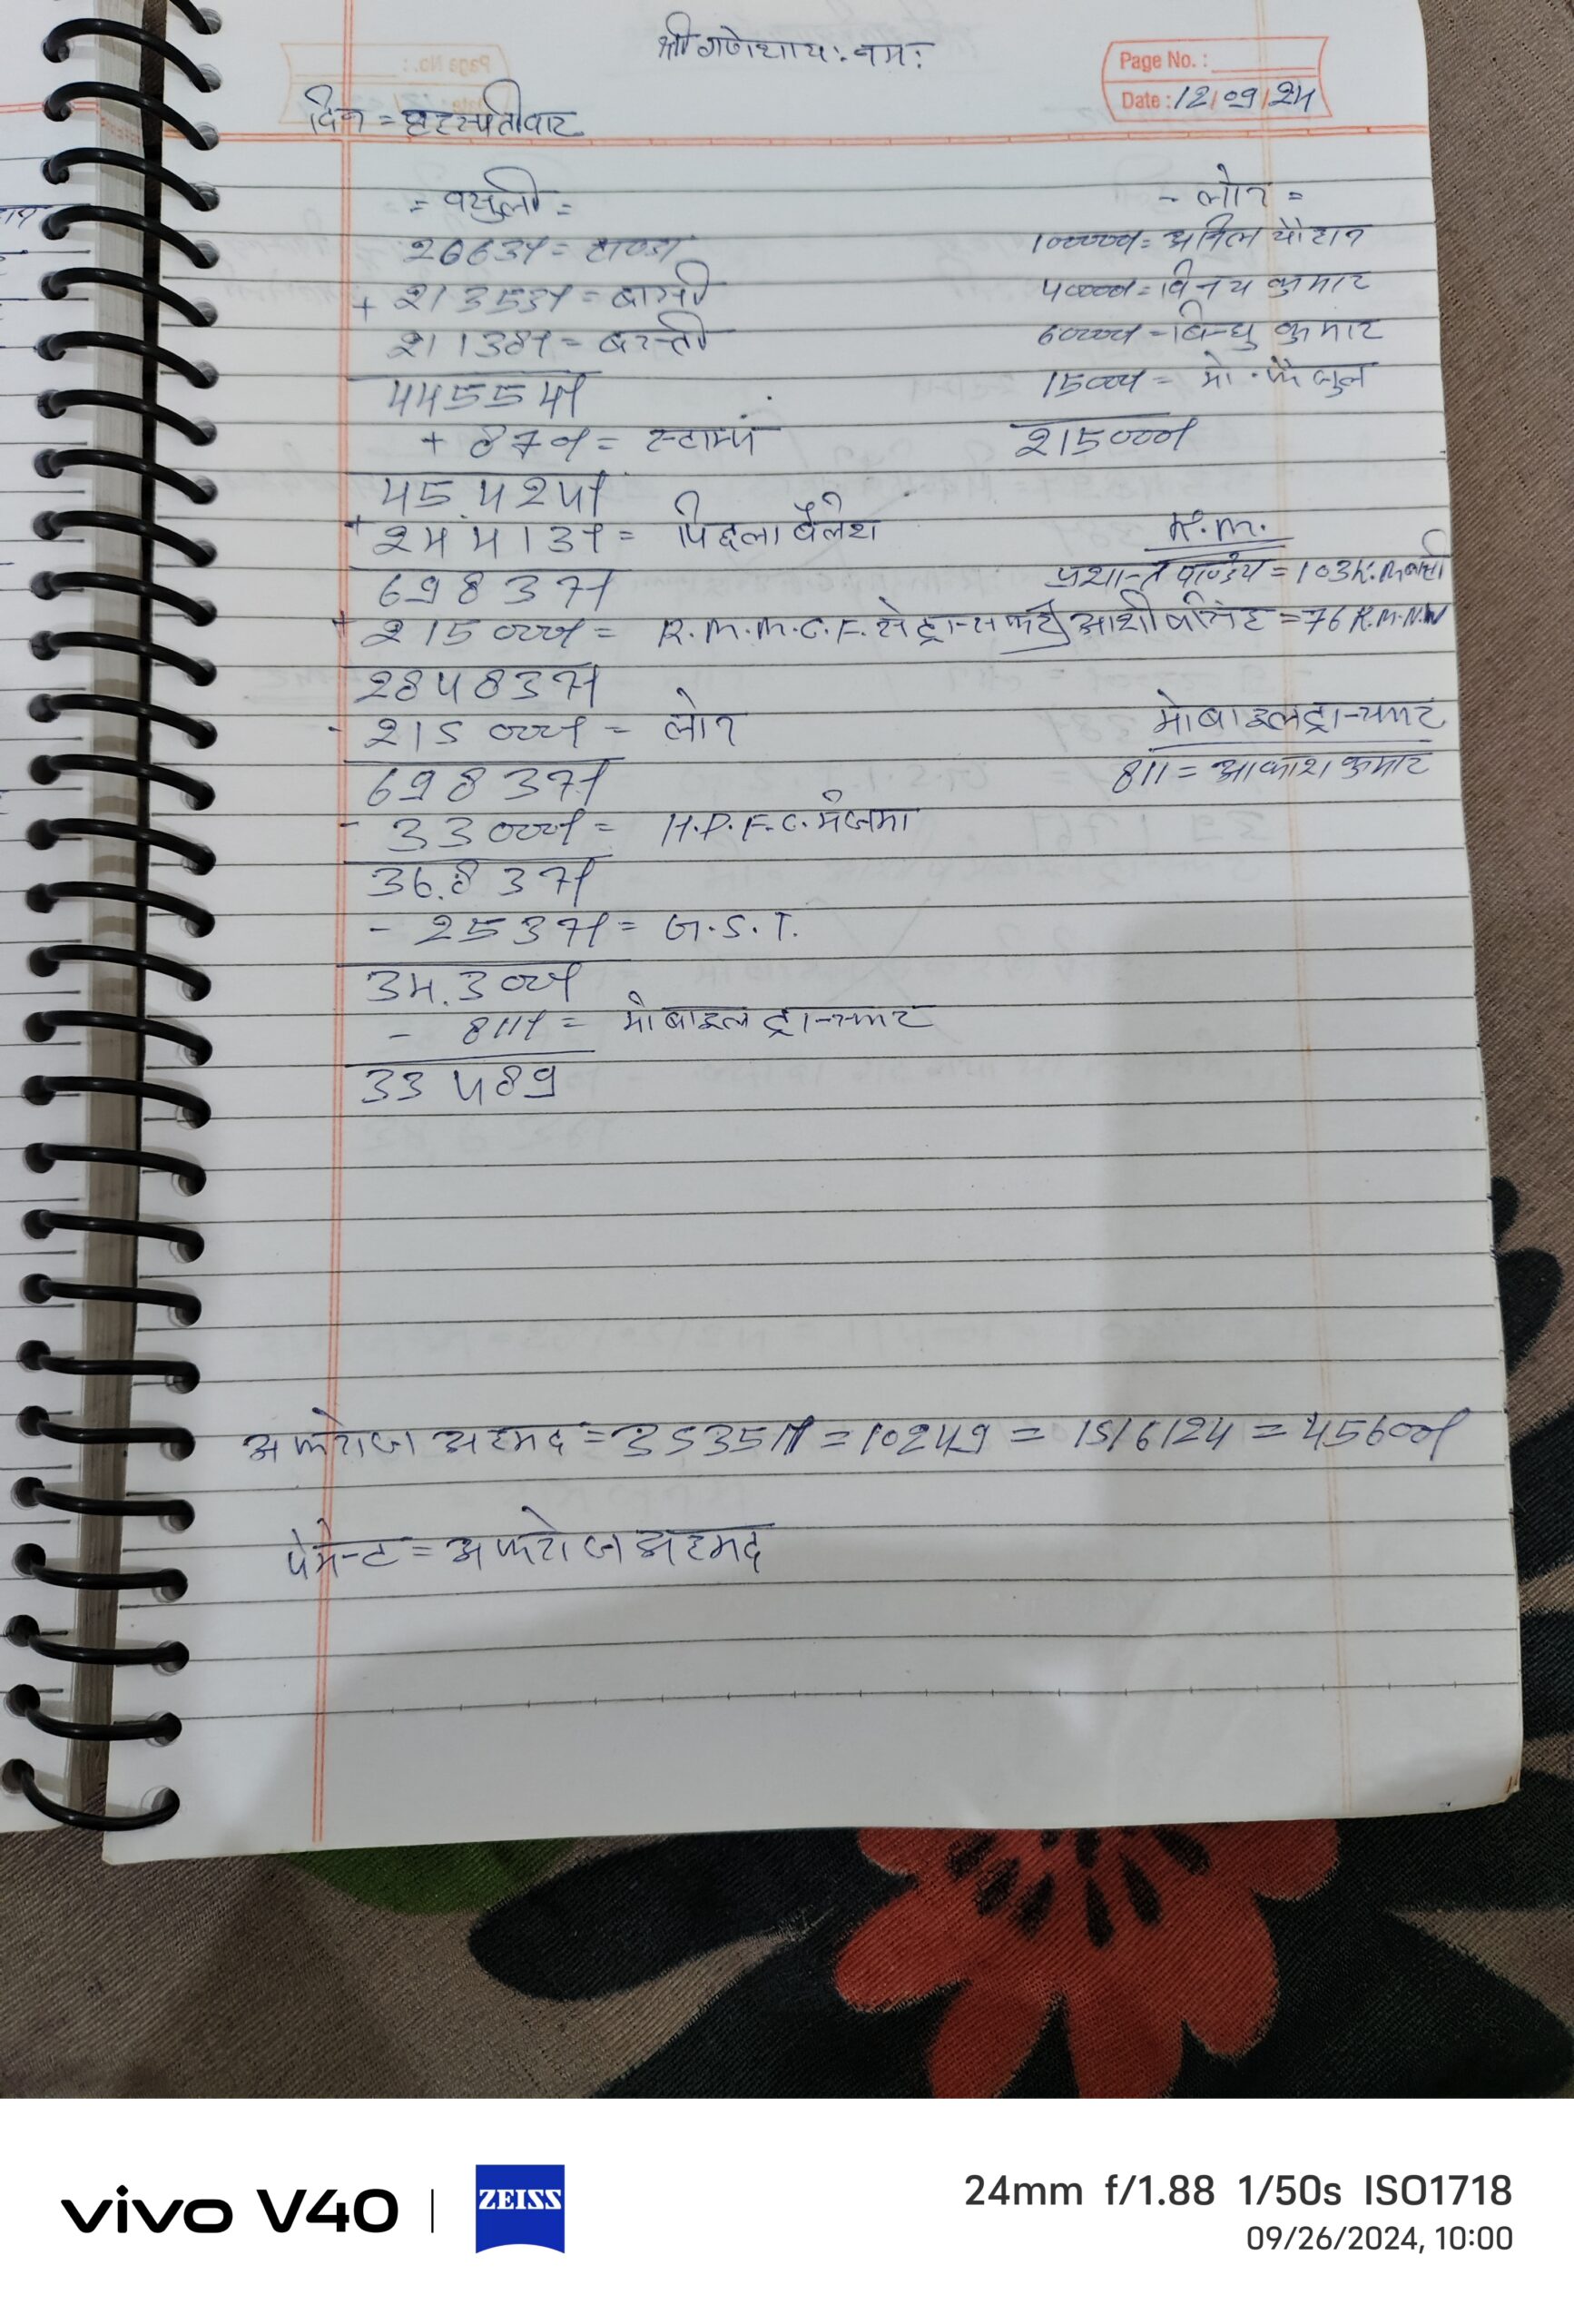 श्री गणेशाय: नम:
Page No. :
Date : 12/09/24
दिन = बृहस्पतीवार
= वसुली =
2063/ = टाण्डा
+ 21353/ = बाग्मी
21138/ = बस्ती
44554/
+ 870/ = स्टाम्प
45.424/
+ 24413/ = पिछला बैलेंश
69837/
+ 215000/ = R.M.M.C.F. से ट्रान्सफर
284837/
- 215000/ = लोन
69837/
- 33000/ = H.D.F.C. में जमा
36.837/
- 2537/ = G.S.T.
34.300/
- 811/ = मोबाइल ट्रान्सफर
33489
- लोन =
100000/ = अनिल चौहान
40000/ = विनय कुमार
60000/ = बिन्धु कुमार
15000/ = मो. फैजुल
215000/
K.M.
प्रशान्त पाण्डेय = 103 K.M
आशीष सिंह = 76 K.M.
मोबाइल ट्रान्सफर
811 = आकाश कुमार
अफरोज अहमद = 35351/ = 10249 = 15/6/24 = 45600/
पेमेन्ट = अफरोज अहमद
vivo V40 | ZEISS
24mm f/1.88 1/50s ISO1718
09/26/2024, 10:00